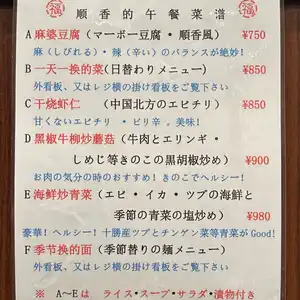 福 順香的午餐菜谱 福
A 麻婆豆腐(マーボー豆腐・順香風) ¥750
麻(しびれる)・辣(辛い)のバランスが絶妙!
B 一天一换的菜(日替わりメニュー) ¥850
外看板、又はレジ横の掛け看板をご覧下さい
C 干烧虾仁 (中国北方のエビチリ) ¥850
甘くないエビチリ ・ ピリ辛 。美味!
D 黑椒牛柳炒蘑菇(牛肉とエリンギ・
しめじ等きのこの黒胡椒炒め) ¥900
お肉の気分の時のおすすめ!きのこでヘルシー!
E 海鲜炒青菜(エビ・イカ・ツブの海鮮と
季節の青菜の塩炒め) ¥980
豪華!ヘルシー!十勝産ツブとチンゲン菜等青菜がGood!
F 季节换的面(季節替りの麺メニュー)
外看板、又はレジ横の掛け看板をご覧下さい
※ A~Eは ライス・スープ・サラダ・漬物付き